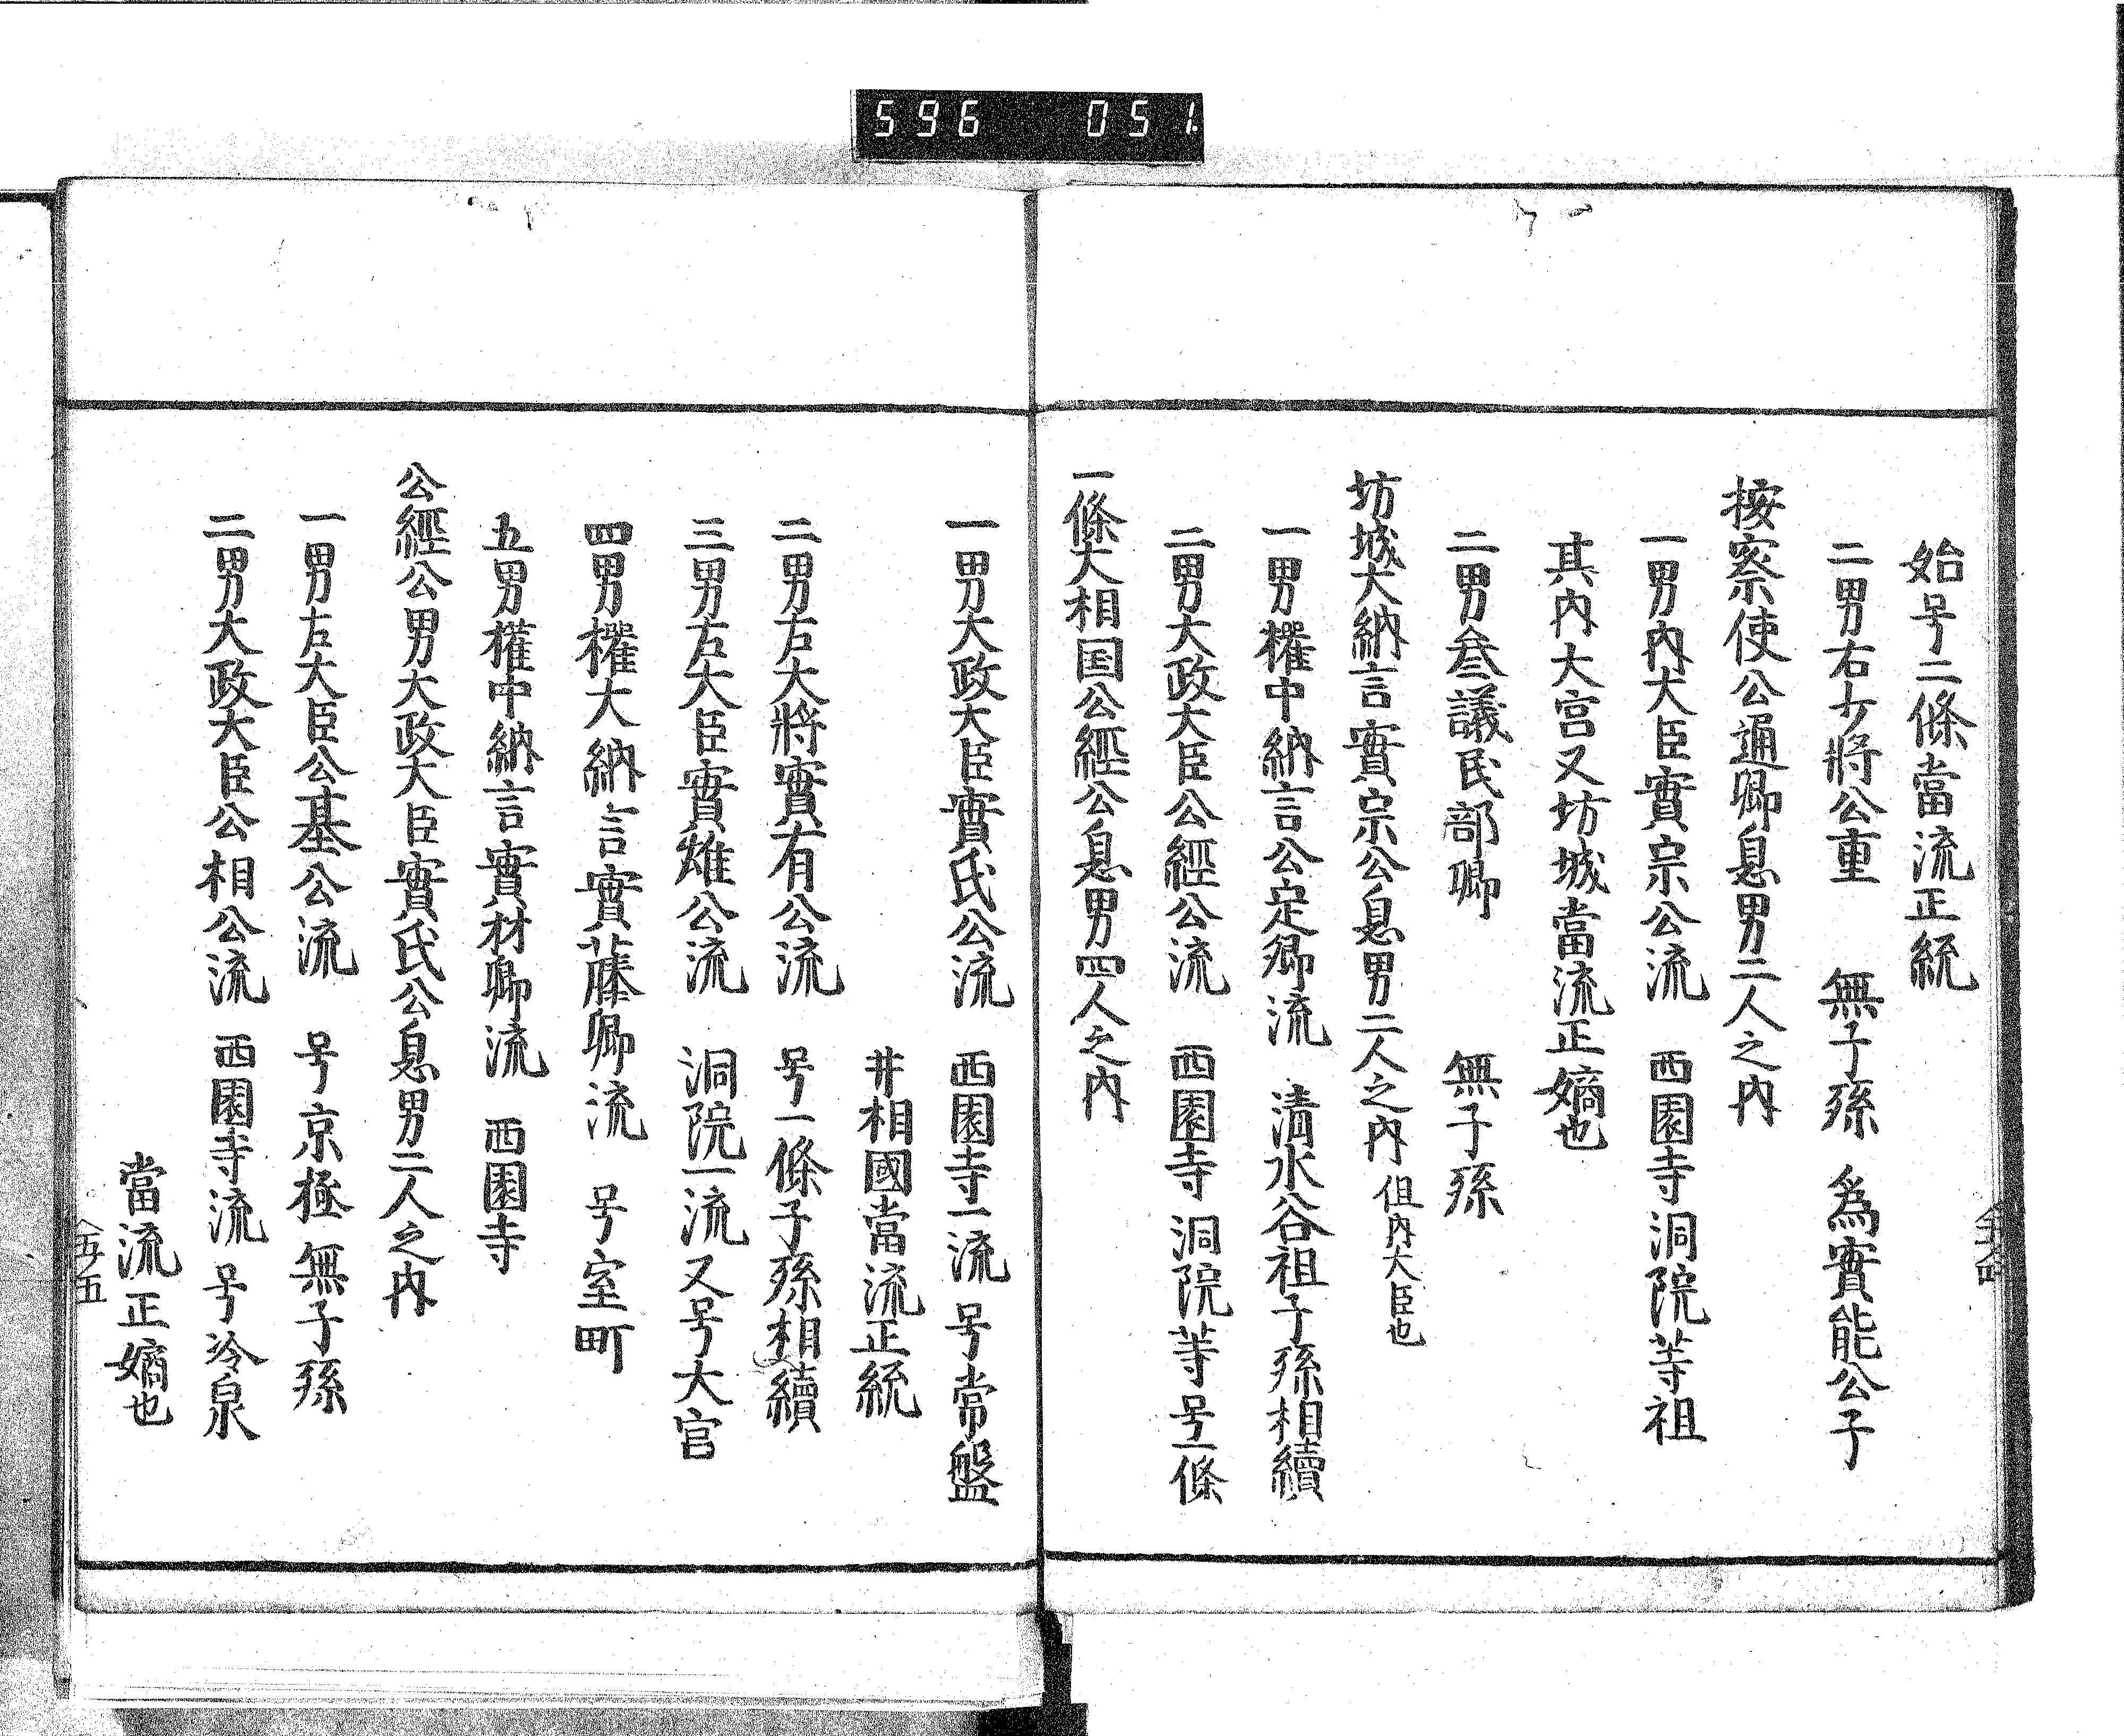 596 051
始号二條當流正統
二男右少將公重 無子孫 爲實能公子
按察使公通卿息男二人之内
一男内大臣實宗公流 西園寺洞院等祖
其内大宮又坊城當流正嫡也
二男叅議民部卿 無子孫
坊城大納言實宗公息男二人之内 但内大臣也
一男權中納言公定卿流 清水谷祖子孫相續
二男大政大臣公經公流 西園寺洞院等号一條
一條大相国公經公息男四人之内
一男大政大臣實氏公流 西園寺一流号常盤
井相國當流正統
二男右大將實有公流 号一條子孫相續
三男左大臣實雄公流 洞院一流又号大宮
四男權大納言實藤卿流 号室町
五男權中納言實材卿流 西園寺
公經公男大政大臣實氏公息男二人之内
一男右大臣公基公流 号京極無子孫
二男大政大臣公相公流 西園寺流号冷泉
當流正嫡也